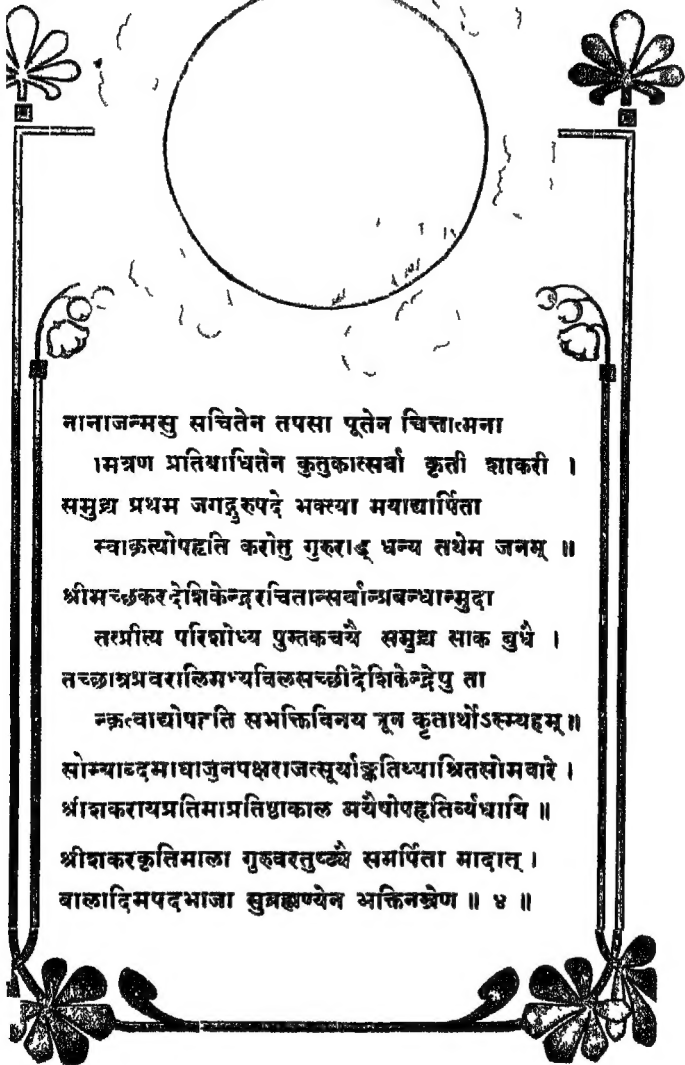 नानाजन्मसु सचितेन तपसा पूतेन चित्तात्मना
मित्रण प्रतिबाधितेन कुतुकात्सर्वा कृती शाकरी ।
समुद्य प्रथम जगद्गुरुपदे भक्त्या मयाद्यार्पिता
स्वाकृत्योपहृति करोतु गुरुराड् धन्य तथेम जनम् ॥
श्रीमच्छकरदेशिकेन्द्ररचितान्सर्वान्प्रबन्धान्मुदा
तत्प्रीत्य परिशोध्य पुस्तकचयै समुद्य साक बुधै ।
तच्छात्रप्रवरालिमध्यविलसच्छ्रीदेशिकेन्द्रेषु ता
न्कृत्वाद्योपहृति सभक्तिविनय नून कृतार्थोऽस्म्यहम् ॥
सोम्याब्दमाघाजुनपक्षराजत्सूर्याङ्कतिथ्याश्रितसोमवारे ।
श्रीशकरायप्रतिमाप्रतिष्ठाकाल अथैषोपहृतिर्व्यधायि ॥
श्रीशकरकृतिमाला गुरुवरतुष्ट्यै समर्पिता मादात् ।
बालादिमपदभाजा सुब्रह्मण्येन भक्तिनम्रेण ॥ ४ ॥